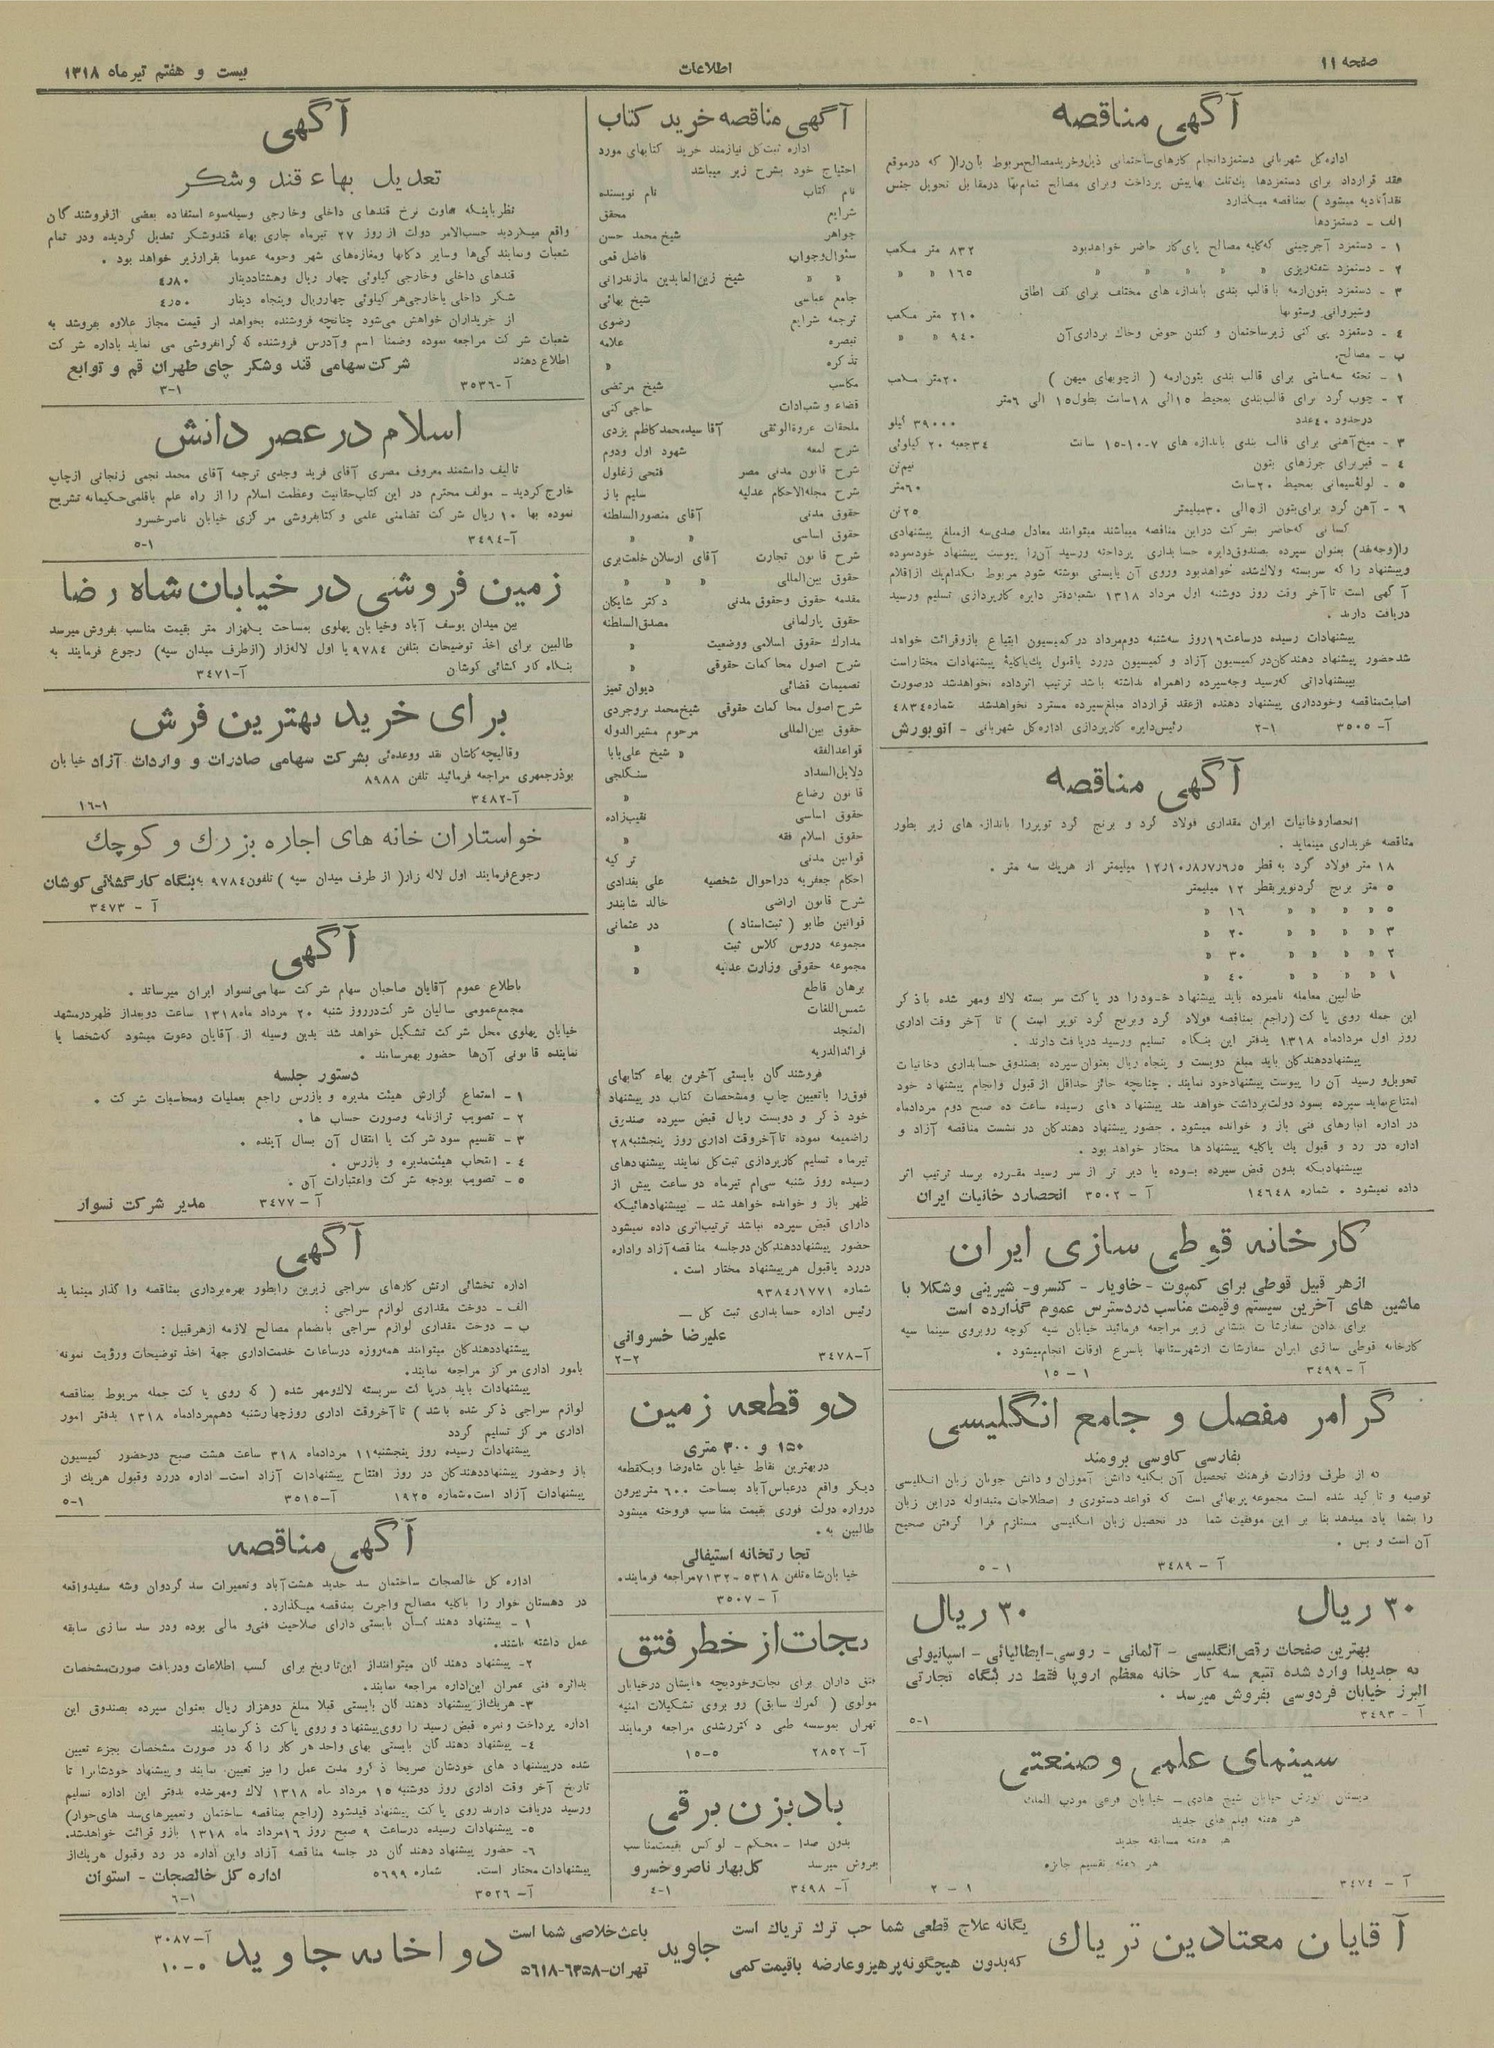 صفحه ۱۱
اطلاعات
بیست و هفتم تیرماه ۱۳۱۸
آگهی مناقصه
اداره کل شهربانی دستمزد انجام کارهای ساختمانی ذیل و خرید مصالح مربوط بان را ( که در موقع
عقد قرارداد برای دستمزدها یک ثلث بها پیش پرداخت و برای مصالح تمام بها در مقابل تحویل جنس
نقداً تادیه میشود ) بمناقصه میگذارد
الف - دستمزدها
۱ - دستمزد آجرچینی که کلیه مصالح پای کار حاضر خواهد بود ۸۳۲ متر مکعب
۲ - دستمزد شفته ریزی » » » » ۱۶۵ » »
۳ - دستمزد بتون ارمه با قالب بندی باندازه های مختلف برای کف اطاق
وشیروانی وستونها ۲۱۰ متر مکعب
۴ - دستمزد پی کنی زیر ساختمان و کندن حوض وخاک برداری آن ۹۴۰ » »
ب - مصالح.
۱ - تخته سه سانتی برای قالب بندی بتون ارمه ( از چوبهای میهن ) ۲۰ متر مکعب
۲ - چوب گرد برای قالب بندی بمحیط ۱۵ الی ۱۸ سانت بطول ۱۵ الی ۶ متر
در حدود ۴۰ عدد ۳۹۰۰۰ کیلو
۳ - میخ آهنی برای قالب بندی باندازه های ۷-۱۰-۱۵ سانت ۳۴ جعبه ۲۰ کیلوئی
۴ - قیر برای جرزهای بتون نیم تن
۵ - لوله سیمانی بمحیط ۲۰ سانت ۶۰ متر
۶ - آهن گرد برای بتون از ۵ الی ۳۰ میلیمتر ۲۵ تن
کسانی که حاضر بشرکت در این مناقصه میباشند میتوانند معادل صدی سه از مبلغ پیشنهادی
را (وجه نقد) بعنوان سپرده بصندوق دایره حسابداری پرداخته ورسید آن را پیوست پیشنهاد خود نموده
وپیشنهاد را که سربسته ولاک شده خواهد بود وروی آن بایستی نوشته شود مربوط بکدام یک از اقلام
آگهی است تا آخر وقت روز دوشنبه اول مرداد ۱۳۱۸ بشعبه دفتر دایره کارپردازی تسلیم ورسید
دریافت دارند .
پیشنهادات رسیده در ساعت ۱۶ روز سه شنبه دوم مرداد در کمیسیون ابتیاع باز و قرائت خواهد
شد حضور پیشنهاد دهندگان در کمیسیون آزاد و کمیسیون در رد یا قبول یک یا کلیه پیشنهادات مختار است
بپیشنهاداتی که رسید وجه سپرده را همراه نداشته باشد ترتیب اثر داده نخواهد شد در صورت
اصابت مناقصه وخودداری پیشنهاد دهنده از عقد قرارداد مبلغ سپرده مسترد نخواهد شد شماره ۴۸۳۴
آ- ۳۵۰۵ ۲-۱ رئیس دایره کارپردازی اداره کل شهربانی - اتو بورش
آگهی مناقصه
انحصار دخانیات ایران مقداری فولاد گرد و برنج گرد توپر را باندازه های زیر بطور
مناقصه خریداری مینماید .
۱۸ متر فولاد گرد به قطر ۶٫۵ر۷ر۸ر۱۰ر۱۲ میلیمتر از هریک سه متر .
۵ متر برنج گرد توپر بقطر ۱۲ میلیمتر
۵ » » » » ۱۶ »
۳ » » » » ۲۰ »
۲ » » » » ۳۰ »
۱ » » » » ۴۰ »
طالبین معامله نامبرده باید پیشنهاد خود را در پاکت سر بسته لاک ومهر شده با ذکر
این جمله روی پاکت (راجع بمناقصه فولاد گرد وبرنج گرد توپر است ) تا آخر وقت اداری
روز اول مرداد ماه ۱۳۱۸ بدفتر این بنگاه تسلیم ورسید دریافت دارند .
پیشنهاد دهندگان باید مبلغ دویست و پنجاه ریال بعنوان سپرده بصندوق حسابداری دخانیات
تحویل و رسید آن را پیوست پیشنهاد خود نمایند . چنانچه حائز حداقل از قبول وانجام پیشنهاد خود
امتناع نماید سپرده بسود دولت برداشت خواهد شد پیشنهاد های رسیده ساعت ده صبح دوم مرداد ماه
در اداره انبارهای فنی باز و خوانده میشود . حضور پیشنهاد دهندگان در نشست مناقصه آزاد و
اداره در رد و قبول یک یا کلیه پیشنهاد ها مختار خواهد بود .
بپیشنهادیکه بدون قبض سپرده بوده یا دیر تر از سر رسید مقرره برسد ترتیب اثر
داده نمیشود . شماره ۱۴۶۴۸ آ - ۳۵۰۲ انحصار دخانیات ایران
کارخانه قوطی سازی ایران
از هر قبیل قوطی برای کمپوت - خاویار - کنسرو - شیرینی وشکلا با
ماشین های آخرین سیستم وقیمت مناسب در دسترس عموم گذارده است
برای دادن سفارشات بنشانی زیر مراجعه فرمائید خیابان سپه کوچه روبروی سینما سپه
کارخانه قوطی سازی ایران سفارشات از شهرستانها باسرع اوقات انجام میشود .
آ - ۳۴۹۹ ۱ - ۱۵
گرامر مفصل و جامع انگلیسی
بفارسی کاوسی برومند
که از طرف وزارت فرهنگ تحصیل آن بکلیه دانش آموزان و دانش جویان زبان انگلیسی
توصیه و تاکید شده است مجموعه پر بهائی است که قواعد دستوری و اصطلاحات متداوله در این زبان
را بشما یاد میدهد بنا بر این موفقیت شما در تحصیل زبان انگلیسی مستلزم فرا گرفتن صحیح
آن است و بس .
آ - ۳۴۸۹ ۱ - ۵
۳۰ ریال ۳۰ ریال
بهترین صفحات رقص انگلیسی - آلمانی - روسی - ایطالیائی - اسپانیولی
که جدیداً وارد شده تتبع سه کار خانه معظم اروپا فقط در بنگاه تجارتی
البرز خیابان فردوسی بفروش میرسد .
آ - ۳۴۹۳ ۱-۵
سینمای علمی و صنعتی
دبستان کورش خیابان شیخ هادی - خیابان فرعی مودب الملک
هر هفته فیلم های جدید
هر هفته مسابقه جدید
هر هفته تقسیم جایزه
آ - ۳۴۷۴ ۱ - ۲
آگهی مناقصه خرید کتاب
اداره ثبت کل نیازمند خرید کتابهای مورد
احتیاج خود بشرح زیر میباشد
نام کتاب نام نویسنده
شرایع محقق
جواهر شیخ محمد حسن
سئوال وجواب فاضل قمی
» » شیخ زین العابدین مازندرانی
جامع عباسی شیخ بهائی
ترجمه شرایع رضوی
تبصره علامه
تذکره »
مکاسب شیخ مرتضی
قضاء و شهادات حاجی کنی
ملحقات عروة الوثقی آقا سید محمد کاظم یزدی
شرح لمعه شهود اول ودوم
شرح قانون مدنی مصر فتحی زغلول
شرح مجله الاحکام عدلیه سلیم باز
حقوق مدنی آقای منصور السلطنه
حقوق اساسی » »
شرح قانون تجارت آقای ارسلان خلعتبری
حقوق بین المللی » » »
مقدمه حقوق وحقوق مدنی دکتر شایکان
حقوق پارلمانی مصدق السلطنه
مدارک حقوق اسلامی ووضعیت »
شرح اصول محاکمات حقوقی »
تصمیمات قضائی دیوان تمیز
شرح اصول محاکمات حقوقی شیخ محمد بروجردی
حقوق بین المللی مرحوم مشیر الدوله
قواعد الفقه » شیخ علی بابا
دلایل السداد سنگلجی
قانون رضاع »
حقوق اساسی نقیب زاده
حقوق اسلام فقه »
قوانین مدنی ترکیه
احکام جعفریه در احوال شخصیه علی بغدادی
شرح قانون اراضی خالد شابندر
قوانین طاپو ( ثبت اسناد ) در عثمانی
مجموعه دروس کلاس ثبت »
مجموعه حقوقی وزارت عدلیه »
برهان قاطع
شمس اللغات
المنجد
فرائد الدریه
فروشندگان بایستی آخرین بهاء کتابهای
فوق را با تعیین چاپ ومشخصات کتاب در پیشنهاد
خود ذکر و دویست ریال قبض سپرده صندوق
را ضمیمه نموده تا آخر وقت اداری روز پنجشنبه ۲۸
تیر ماه تسلیم کارپردازی ثبت کل نمایند پیشنهادهای
رسیده روز شنبه سی ام تیر ماه دو ساعت پیش از
ظهر باز و خوانده خواهد شد - بپیشنهادهائیکه
دارای قبض سپرده نباشد ترتیب اثری داده نمیشود
حضور پیشنهاد دهندگان در جلسه مناقصه آزاد واداره
در رد یا قبول هر پیشنهاد مختار است .
شماره ۹۳۸۴٫۱۷۷۱
رئیس اداره حسابداری ثبت کل —
علیرضا خسروانی
آ-۳۴۷۸ ۲-۲
دو قطعه زمین
۱۵۰ و ۳۰۰ متری
در بهترین نقاط خیابان شاهرضا ویکقطعه
دیگر واقع در عباس آباد بمساحت ۶۰۰ متر بیرون
دروازه دولت فوری بقیمت مناسب فروخته میشود
طالبین به .
تجارتخانه استیفالی
خیابان شاه تلفن ۵۳۱۸-۷۱۳۲ مراجعه فرمایند.
آ - ۳۵۰۷
نجات از خطر فتق
فتق داران برای نجات وخود بچه هایشان در خیابان
مولوی ( گمرک سابق) رو بروی تشکیلات امنیه
تهران بموسسه طبی دکتر رشدی مراجعه فرمایند
آ- ۲۸۵۲ ۵-۱۵
بادبزن برقی
بدون صدا - محکم - لوکس بقیمت مناسب
بفروش میرسد کل بهار ناصر و خسرو
آ- ۳۴۹۸ ۱-۴
آگهی
تعدیل بهاء قند وشکر
نظر باینکه تفاوت نرخ قندهای داخلی وخارجی وسیله سوء استفاده بعضی از فروشندگان
واقع میگردید حسب الامر دولت از روز ۲۷ تیرماه جاری بهاء قند وشکر تعدیل گردیده ودر تمام
شعبات ونمایندگی ها وسایر دکانها ومغازه های شهر وحومه عموما بقرار زیر خواهد بود .
قندهای داخلی وخارجی کیلوئی چهار ریال وهشتاد دینار ۴٫۸۰
شکر داخلی یا خارجی هر کیلوئی چهار ریال وپنجاه دینار ۴٫۵۰
از خریداران خواهش می شود چنانچه فروشنده بخواهد از قیمت مجاز علاوه بفروشد به
شعبات شرکت مراجعه نموده وضمناً اسم وآدرس فروشنده که گرانفروشی می نماید باداره شرکت
اطلاع دهند شرکت سهامی قند وشکر چای طهران قم و توابع
آ-۳۵۳۶ ۱-۳
اسلام در عصر دانش
تالیف دانشمند معروف مصری آقای فرید وجدی ترجمه آقای محمد نجمی زنجانی از چاپ
خارج گردید - مولف محترم در این کتاب حقانیت وعظمت اسلام را از راه علم باقلمی حکیمانه تشریح
نموده بها ۱۰ ریال شرکت تضامنی علمی و کتابفروشی مرکزی خیابان ناصر خسرو
آ-۳۴۹۴ ۱-۵
زمین فروشی در خیابان شاه رضا
بین میدان یوسف آباد وخیابان پهلوی بمساحت یکهزار متر بقیمت مناسب بفروش میرسد
طالبین برای اخذ توضیحات بتلفن ۹۷۸۴ یا اول لاله زار (از طرف میدان سپه) رجوع فرمایند به
بنگاه کارگشائی کوشان آ-۳۴۷۱
برای خرید بهترین فرش
وقالیچه کاشان نقد ووعده ئی بشرکت سهامی صادرات و واردات آزاد خیابان
بوذرجمهری مراجعه فرمائید تلفن ۸۹۸۸
آ-۳۴۸۲ ۱-۱۶
خواستاران خانه های اجاره بزرگ و کوچک
رجوع فرمایند اول لاله زار( از طرف میدان سپه ) تلفون ۹۷۸۴ به بنگاه کارگشائی کوشان
آ - ۳۴۷۳
آگهی
باطلاع عموم آقایان صاحبان سهام شرکت سهامی نسوار ایران میرساند .
مجمع عمومی سالیان شرکت در روز شنبه ۲۰ مرداد ماه ۱۳۱۸ ساعت دو بعد از ظهر در مشهد
خیابان پهلوی محل شرکت تشکیل خواهد شد بدین وسیله از آقایان دعوت میشود که شخصا یا
نماینده قانونی آن ها حضور بهمرسانند .
دستور جلسه
۱ - استماع گزارش هیئت مدیره و بازرس راجع بعملیات ومحاسبات شرکت .
۲ - تصویب ترازنامه وصورت حساب ها .
۳ - تقسیم سود شرکت یا انتقال آن بسال آینده .
۴ - انتخاب هیئت مدیره و بازرس .
۵ - تصویب بودجه شرکت واعتبارات آن .
آ - ۳۴۷۷ مدیر شرکت نسوار
آگهی
اداره تخشائی ارتش کارهای سراجی زیرین را بطور بهره برداری بمناقصه واگذار مینماید
الف - دوخت مقداری لوازم سراجی :
ب - دوخت مقداری لوازم سراجی بانضمام مصالح لازمه از هر قبیل :
پیشنهاد دهندگان میتوانند همه روزه در ساعات خدمت اداری جهة اخذ توضیحات ورؤیت نمونه
بامور اداری مرکز مراجعه نمایند.
پیشنهادات باید در پاکت سربسته لاک ومهر شده ( که روی پاکت جمله مربوط بمناقصه
لوازم سراجی ذکر شده باشد ) تا آخر وقت اداری روز چهارشنبه دهم مرداد ماه ۱۳۱۸ بدفتر امور
اداری مرکز تسلیم گردد
پیشنهادات رسیده روز پنجشنبه ۱۱ مرداد ماه ۳۱۸ ساعت هشت صبح در حضور کمیسیون
باز وحضور پیشنهاد دهندگان در روز افتتاح پیشنهادات آزاد است - اداره در رد وقبول هریک از
پیشنهادات آزاد است. شماره ۱۹۲۵ آ-۳۵۱۵ ۱-۵
آگهی مناقصه
اداره کل خالصجات ساختمان سد جدید هشت آباد وتعمیرات سد گردوان وشه سفید واقعه
در دهستان خوار را با کلیه مصالح واجرت بمناقصه میگذارد.
۱ - پیشنهاد دهندگان بایستی دارای صلاحیت فنی و مالی بوده ودر سد سازی سابقه
عمل داشته باشند.
۲- پیشنهاد دهندگان میتوانند از این تاریخ برای کسب اطلاعات ودریافت صورت مشخصات
بدائره فنی عمران این اداره مراجعه نمایند.
۳- هر یک از پیشنهاد دهندگان بایستی قبلا مبلغ دو هزار ریال بعنوان سپرده بصندوق این
اداره پرداخت ونمره قبض رسید را روی پیشنهاد و روی پاکت ذکر نمایند
۴- پیشنهاد دهندگان بایستی بهای واحد هر کار را که در صورت مشخصات بجزء تعیین
شده در پیشنهاد های خودشان صریحا ذکر و مدت عمل را نیز تعیین نمایند و پیشنهاد خودشانرا تا
تاریخ آخر وقت اداری روز دوشنبه ۱۵ مرداد ماه ۱۳۱۸ لاک ومهر شده بدفتر این اداره تسلیم
ورسید دریافت دارند روی پاکت پیشنهاد قید شود (راجع بمناقصه ساختمان وتعمیر های سد های خوار)
۵- پیشنهادات رسیده در ساعت ۹ صبح روز ۱۶ مرداد ماه ۱۳۱۸ باز و قرائت خواهد شد.
۶- حضور پیشنهاد دهندگان در جلسه مناقصه آزاد واین اداره در رد وقبول هر یک از
پیشنهادات مختار است. شماره ۵۶۹۹ اداره کل خالصجات - استوان
آ- ۳۵۲۶ ۱-۶
آقایان معتادین تریاک
یگانه علاج قطعی شما حب ترک تریاک است
که بدون هیچگونه پرهیز و عارضه با قیمت کمی
جاوید
باعث خلاصی شما است
تهران-۶۳۵۸-۵۶۱۸
دواخانه جاوید
آ-۳۰۸۷
۵-۱۰